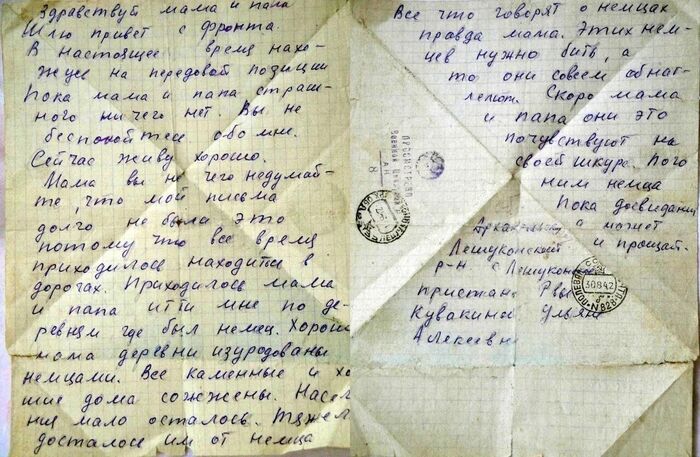 Здравствуй мама и папа
Шлю привет с фронта.
В настоящее время нахо-
жусь на передовой позиции
Пока мама и папа страш-
ного ничего нет. Вы не
беспокойтесь обо мне.
Сейчас живу хорошо.
Мама вы не чего недумай-
те, что мои письма
долго не были это
потому что все время
приходилось находиться в
дорогах. Приходилось мама
и папа итти мне по де-
ревням где был немец. Хорошо
мама деревни изуродованы
немцами. Все каменные и хо
шие дома сожжены. Насел
ния мало осталось. Тяжел
досталось им от немца
Все что говорят о немцах
правда мама. Этих нем-
цев нужно бить, а
то они совсем обнаг-
леют. Скоро мама
и папа они это
почувствуют на
своей шкуре. Пого
ним немца
Пока досвидани
а может
и прощай.
Лешуконский
р-н с Лешуконс
пристань
Кувакиной Ульян
Алексеевн
ПРОСМОТРЕНО
Военной Цензурой
8
30842
ПОЛЕВАЯ
N 828